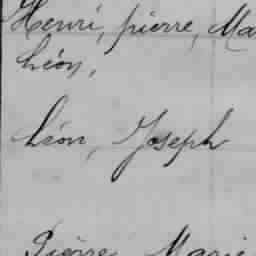 Henri, pierre, Ma
Léon,
Léon, Joseph
Pierre Marie